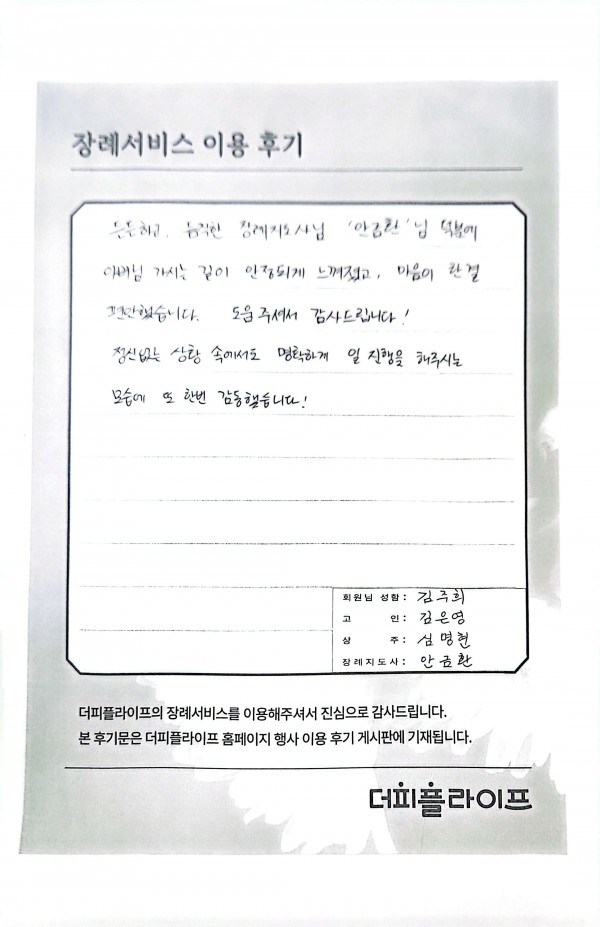 장례서비스 이용 후기
든든하고, 듬직한 장례지도사님 '안금환'님 덕분에
아버님 가시는 길이 안정되게 느껴졌고, 마음이 한결
편안했습니다. 도움주셔서 감사드립니다!
정신없는 상황 속에서도 명확하게 일 진행을 해주시는
모습에 또 한번 감동했습니다!
회원님 성함: 김주희
고 인: 김은영
상 주: 심명현
장례지도사: 안금환
더피플라이프의 장례서비스를 이용해주셔서 진심으로 감사드립니다.
본 후기문은 더피플라이프 홈페이지 행사 이용 후기 게시판에 기재됩니다.
더피플라이프